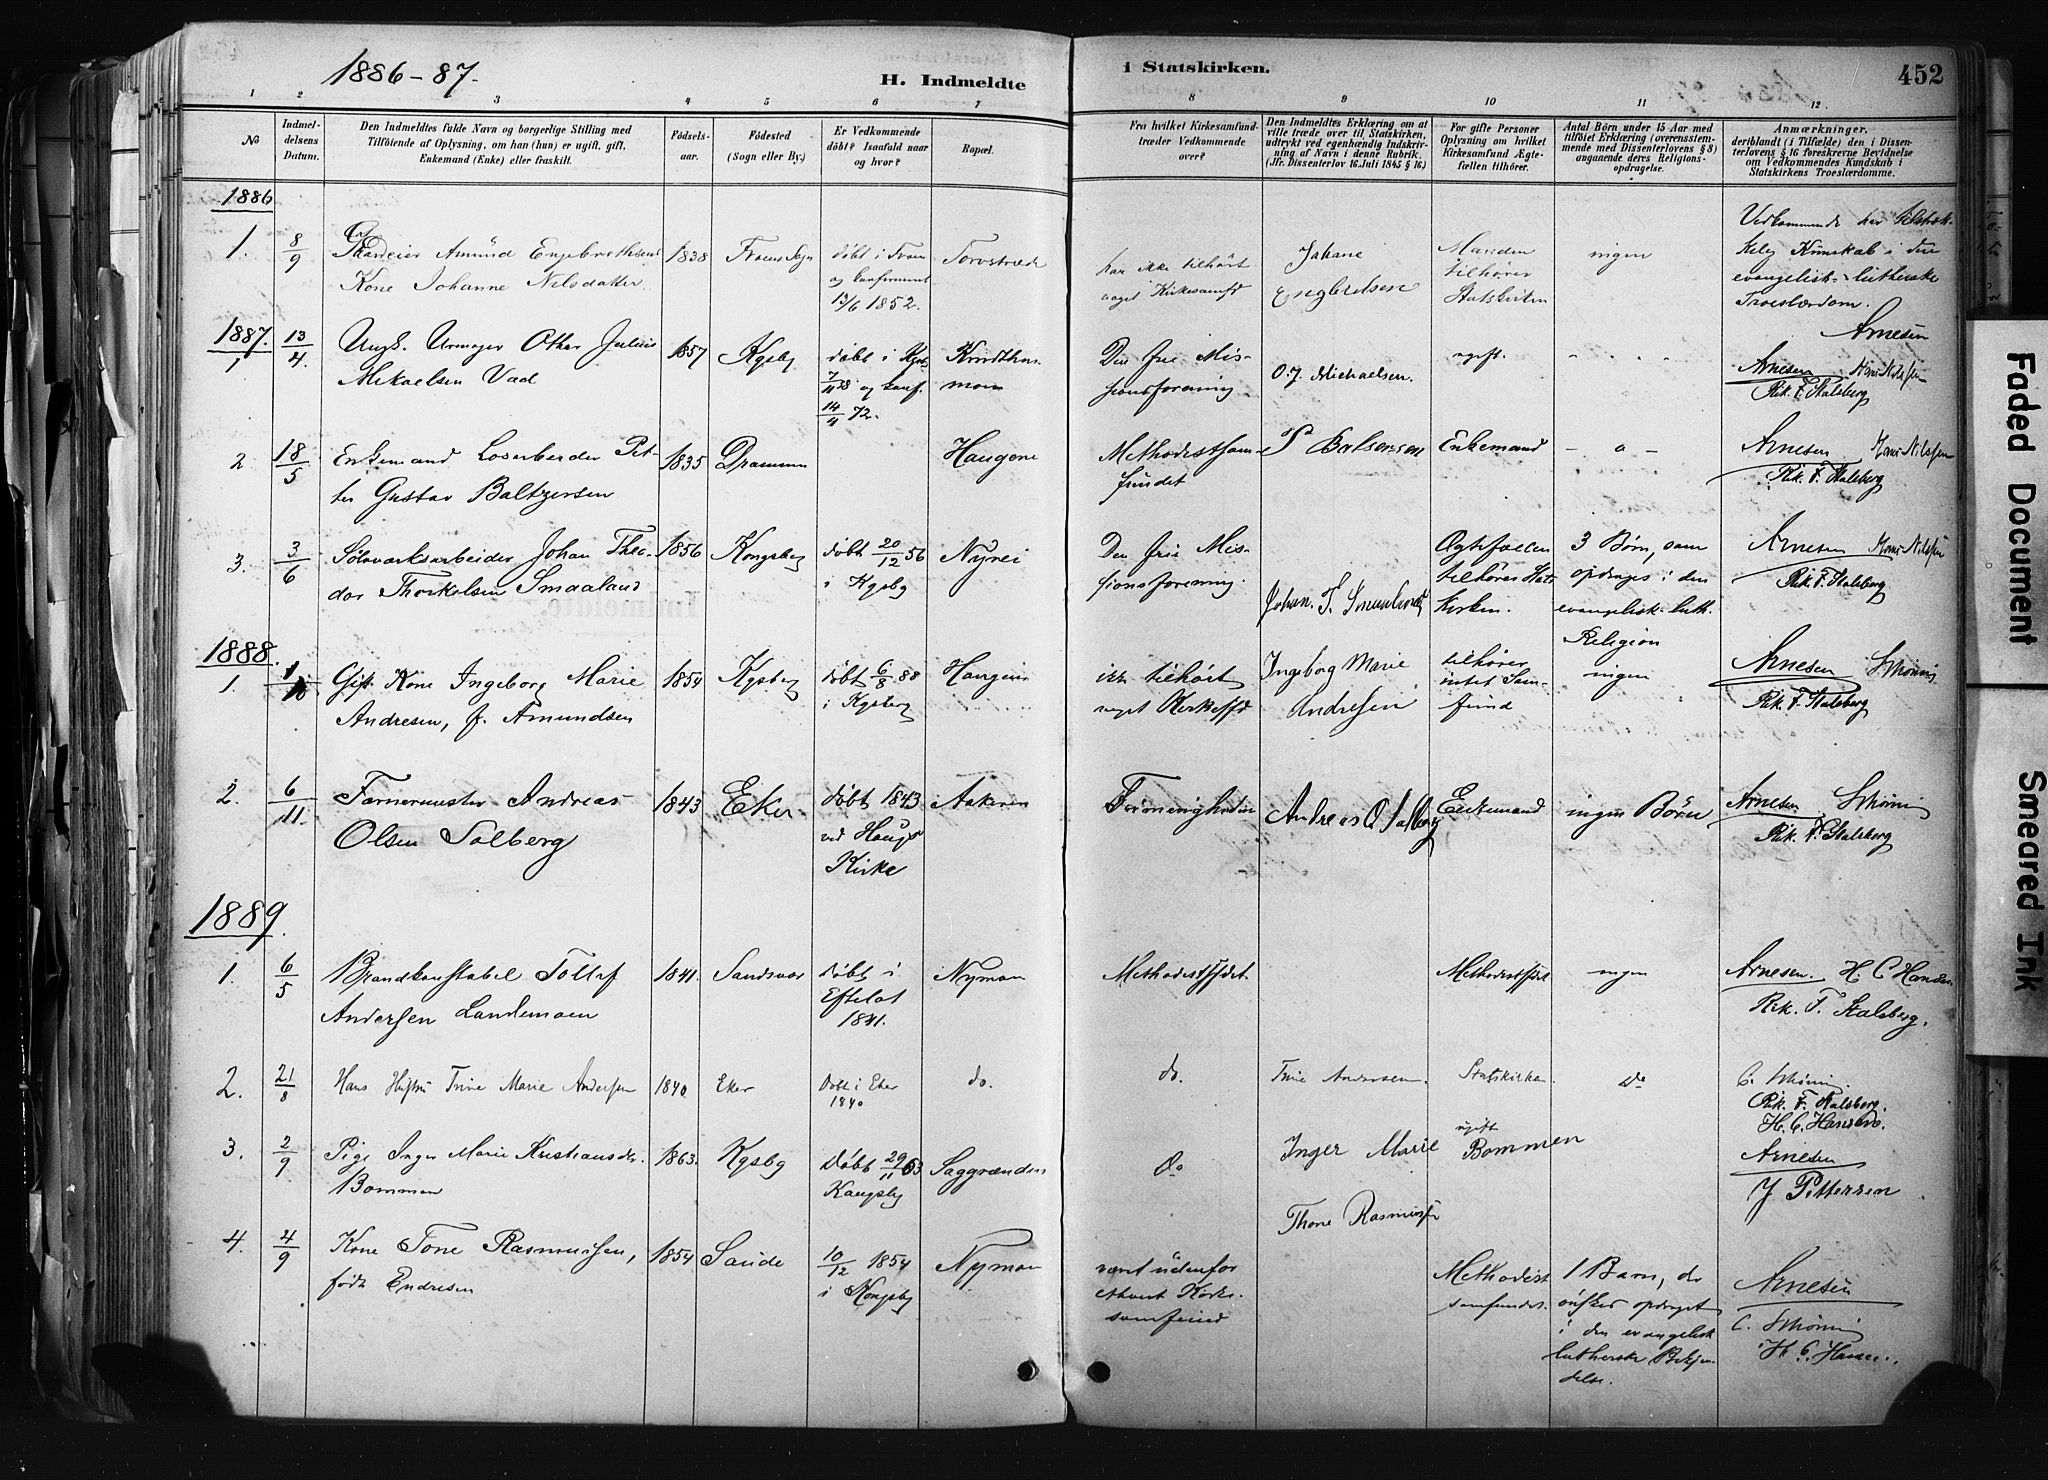 1886-87.
H. Indmeldte
i Statskirken.
452
1 2 3 4 5 6 7 8 9 10 11 12
No
Indmel-
delsens
Datum.
Den Indmeldtes fulde Navn og borgerlige Stilling med
Tilföiende af Oplysning, om han (hun) er ugift, gift,
Enkemand (Enke) eller fraskilt.
Födsels-
aar.
Födested
(Sogn eller By.)
Er Vedkommende
döbt? Isaafald naar
og hvor?
Bopæl.
Fra hvilket Kirkesamfund
træder Vedkommende
over?
Den Indmeldtes Erklæring om at
ville træde over til Statskirken,
udtrykt ved egenhændig Indskriv-
ning af Navn i denne Rubrik.
(Jfr. Dissenterlov 16 Juli 1845 § 16.)
For gifte Personer
Oplysning om hvilket
Kirkesamfund Ægte-
fællen tilhörer.
Antal Börn under 15 Aar med
tilföiet Erklæring (overensstem-
mende med Dissenterlovens § 8)
angaaende deres Religions-
opdragelse.
Anmærkninger,
deriblandt (i Tilfælde) den i Dissen-
terlovens § 16 foreskrevne Bevidnelse
om Vedkommendes Kundskab i
Statskirkens Troeslærdomme.
1886
1.
8/9
Amund Engebrethsens
Kone Johanne Nilsdatter
1838
döbt i
og konfirmeret
13/6 1852.
har ikke tilhört
noget Kirkesamfd
Manden
tilhörer
Statskirken
ingen
Vedkommende har tilstræk-
kelig Kundskab i den
evangelisk-lutherske
Troeslærdom.
Arnesen
1887.
1
13/4
Ungk. Urmager Othar Julius
Mikaelsen Vad
1857
Kgsbg
döbt i Kgsb
og konf.
14/4 72.
Den frie Mis-
sionsforening
O. J. Michaelsen.
ugift.
Arnesen Hans Nilssen
Rik. F. Stalsberg
2
18/5
Enkemand Löserbeider Pet-
ter Gustav Baltzersen
1835
Drammen
Haugene
Methodistsam-
fundet
Enkemand
- o -
Arnesen Hans Nilssen
Rik. F. Stalsberg
3.
3/6
Sölvverksarbeider Johan Theo-
dor Thorkelsen Smaaland
1856
Kongsberg
döbt 20/12 56
i Kgsbg
Nyvei
Den frie Mis-
sionsforening.
Johan. T. Smaaland
Ægtefællen
tilhörer Stats
Kirken.
3 Börn, som
opdrages i den
evangelisk-luth.
Religion
Arnesen Hans Nilssen
Rik. F. Stalsberg
1888.
1.
Gift Kone Ingeborg Marie
Andresen, f. Amundsen
1854
Kgsberg
döbt 6/8 88
i Kgsberg
ikke tilhört
noget Kirkessfd
Ingeborg Marie
Andresen
tilhörer
intet Sam-
fund
ingen
Arnesen
Rik. F. Stalsberg
2.
6/11
Andreas
Olsen Solberg
1843
Eker
Döbt 1843
ved Haugs
Kirke
Aakren
Andreas O Solberg
Enkemand
ingen Börn
Arnesen
Rik. F. Stalsberg
1889.
1.
6/5
Brandkonstabel Tollef
Andersen Landemoen
1841.
Sandsvær
döbt i
Efteløt
1841.
Nymoen
Methodistsfdet.
Methodistsfdet
ingen
Arnesen. H. C. Hansen
Rik. F. Stalsberg.
2.
21/8
Hans Hustru Trine Marie Andersen
1840
Eker
Döbt i Eker
1840
do.
do.
Trine Andersen.
Statskirken.
do
Rik. F. Stalsberg.
H. C. Hansen.
3.
2/9
Pige Inger Marie Kristiansdr.
Bommen
1863.
Kgsbg
Döbt 29/11 63
Kongsbg
Saggrenden
do
Inger Marie Bommen
ugift
Arnesen
J Pettersen
4.
4/9
Kone Tone Rasmussen,
født Endresen
1854
Saude
10/12 1854
i Kongsbg
Nymoen
været udenfor
ethvert Kirke-
samfund
Thone Rasmussen
Methodist
samfundet.
1 Barn, der
önskes opdraget
i den evangelisk
lutherske Bekjen-
delse.
Arnesen
H. C. Hansen.
Faded Document
Smeared Ink